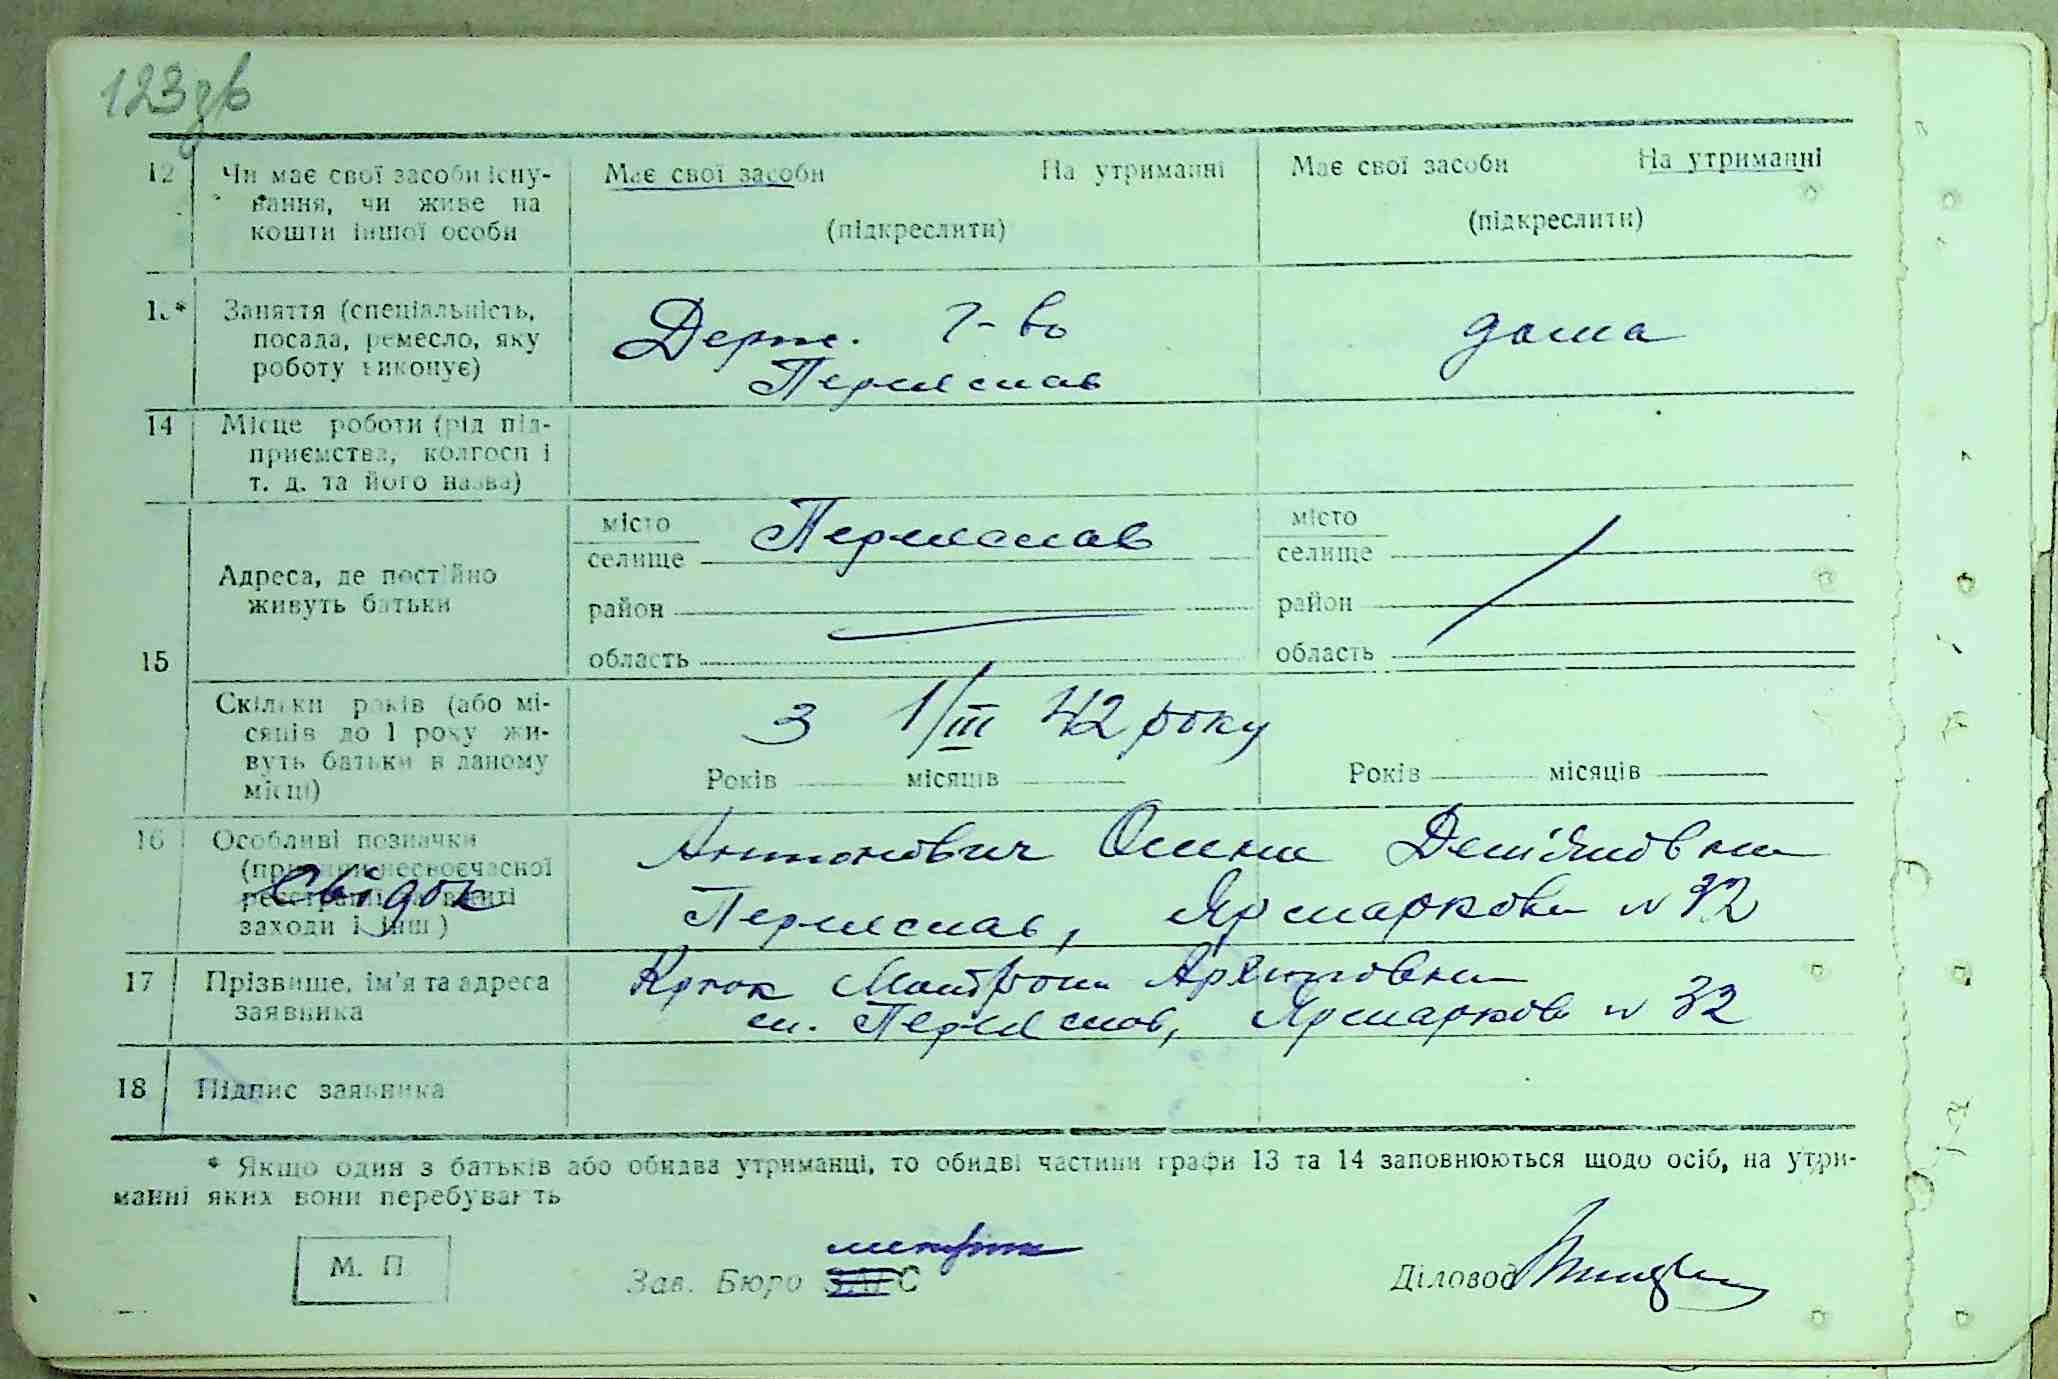 123 зв
12 Чи має свої засоби існу- Має свої засоби На утриманні Має свої засоби На утриманні
вання, чи живе на
кошти іншої особи (підкреслити) (підкреслити)
13* Заняття (спеціальність, Держ. г-во дома
посада, ремесло, яку
роботу виконує) Переяслав
14 Місце роботи (рід під-
приємства, колгосп і
т. д. та його назва)
місто Переяслав місто
селище селище
Адреса, де постійно
живуть батьки район район
15 область область
Скільки років (або мі- З 1/III 42 року
сяців до 1 року жи-
вуть батьки в даному Років місяців Років місяців
місці)
16 Особливі позначки Антонович Олена Демʼяновна
(причини несвоєчасної
реєстрації, вжиті Свідок
заходи і інш.) Переяслав, Ярмаркова № 32
17 Прізвище, ім'я та адреса Крюк Мотрона Архиповна
заявника м. Переяслав, Ярмаркова № 32
18 Підпис заявника
* Якщо один з батьків або обидва утриманці, то обидві частини графи 13 та 14 заповнюються щодо осіб, на утри-
манні яких вони перебувають
М. П
Зав. Бюро ЗАГС метрик Діловод